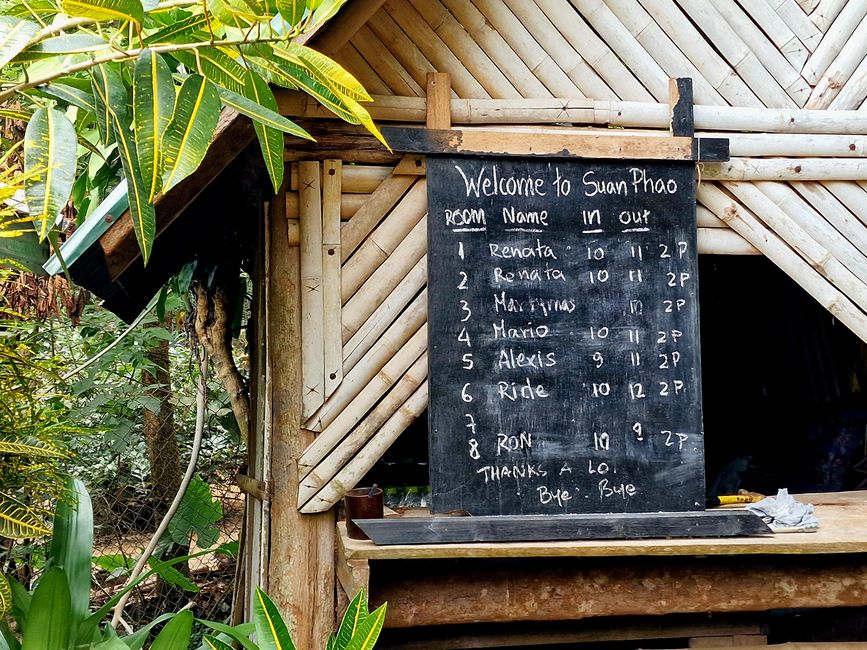 Welcome to Suan Phao
ROOM Name in out
1 Renata 10 11 2 P
2 Renata 10 11 2 P
3 10 2 P
4 Mario 10 11 2 P
5 Alexis 9 11 2 P
6 Ride 10 12 2 P
7 9
8 RON 10 2 P
THANKS A LO
Bye Bye